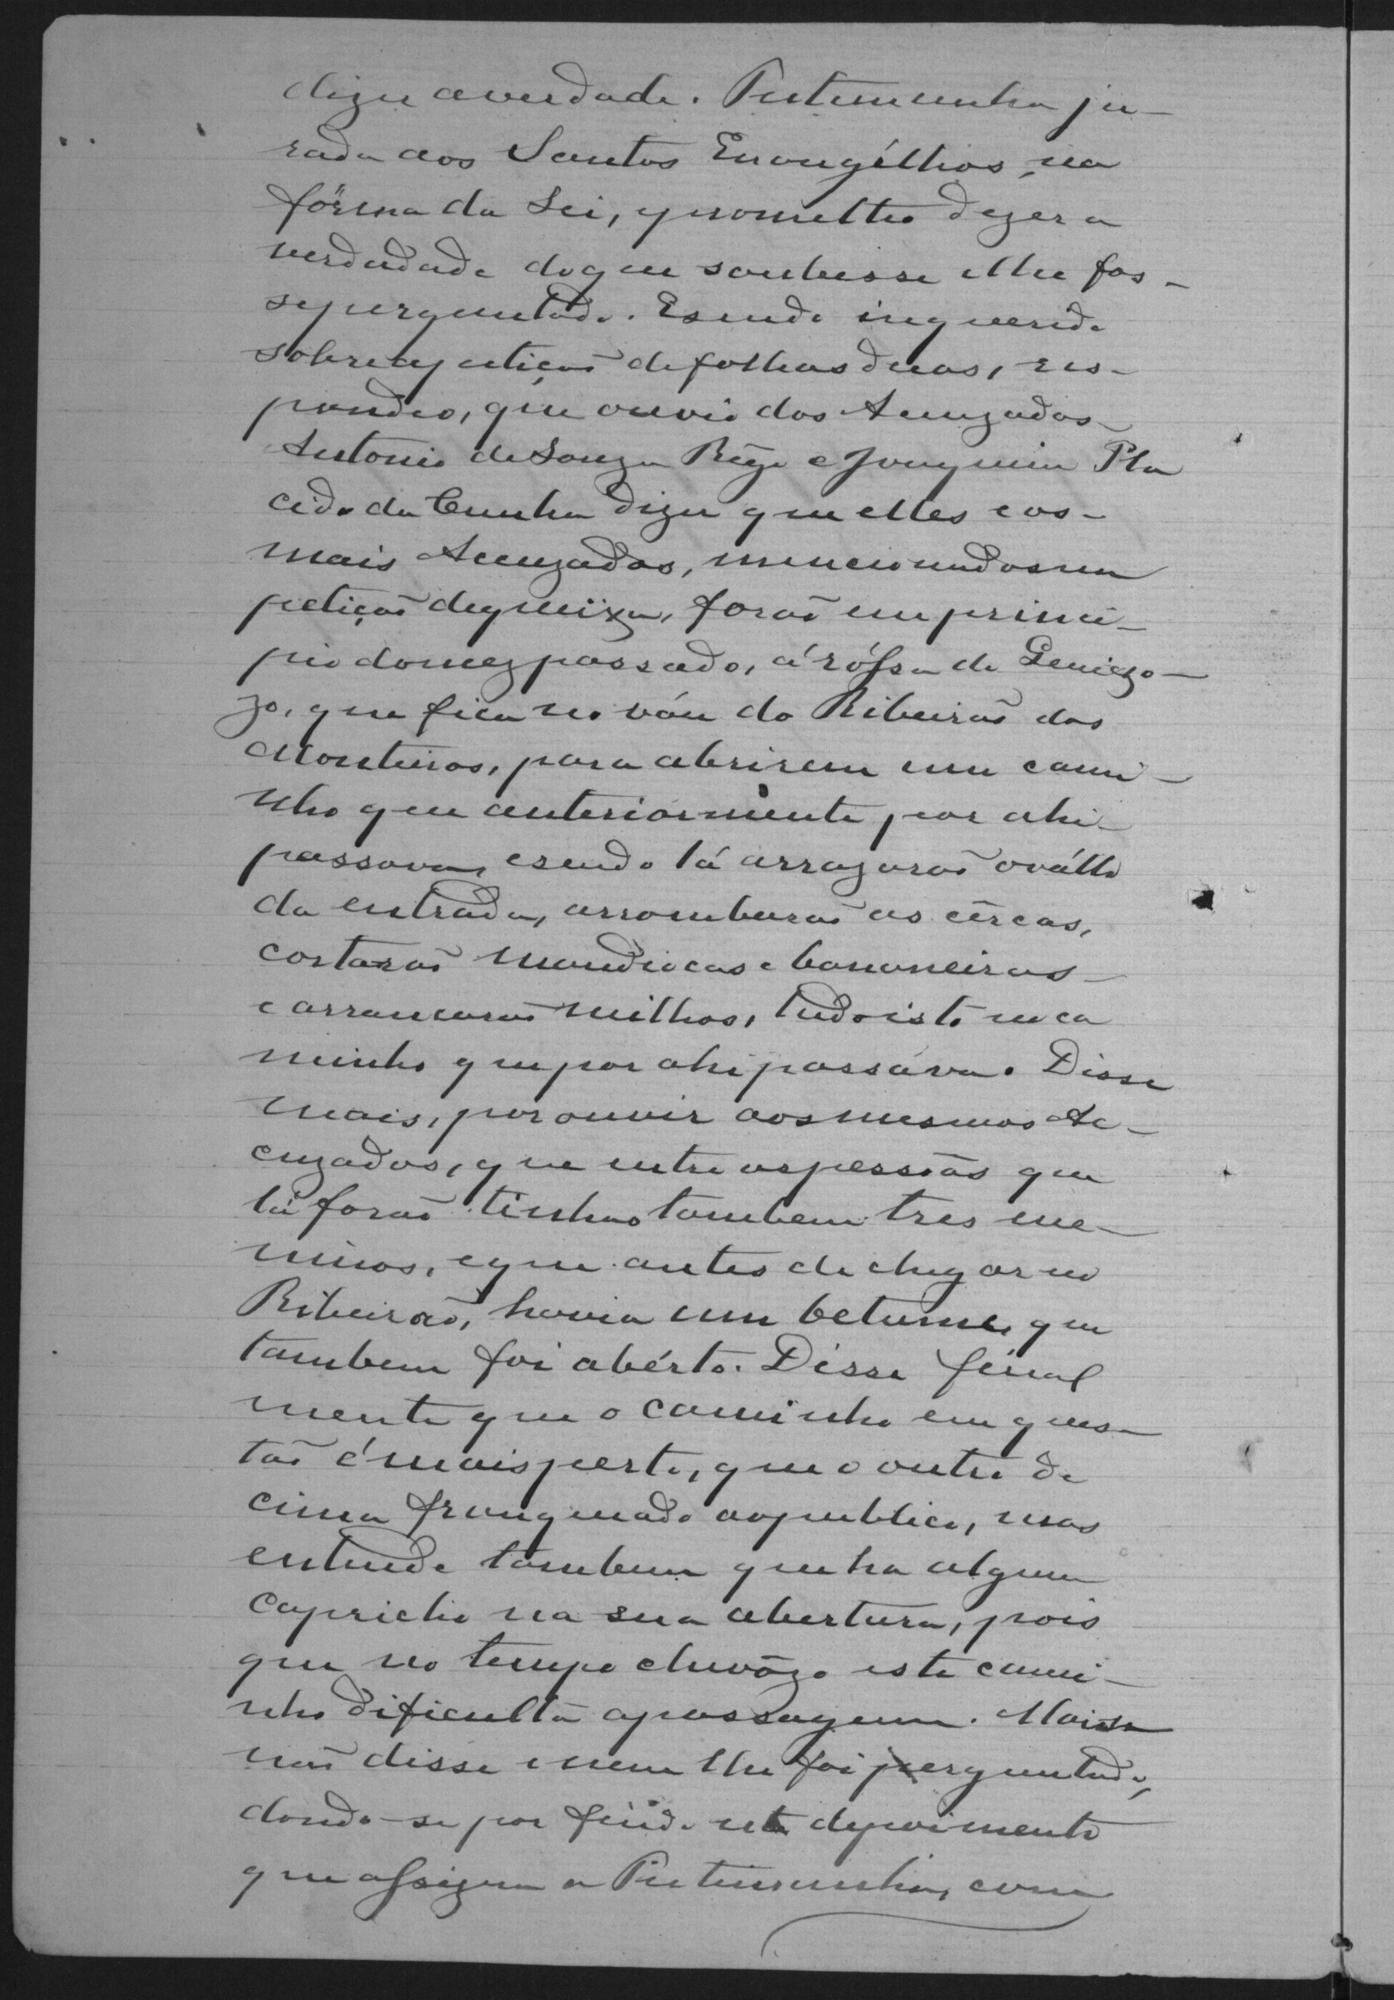 dizer a verdade. Testemunha ju-
rada aos Santos Evangélhos, na
fórma da Lei, prometteo dizer a
verdadade do que soubesse e lhe fos-
se perguntado. E sendo inquerida
sobre a petiçaõ de folhas duas, res-
pondeo, que ouvio dos Acuzados
Antonio de Souza Rêgo e Joaquim Pla
cido da Cunha dizer que elles e os
mais Acuzados, mencionados na
petiçaõ de queixa, foraõ em princi-
pio do mez passado, á róssa de
zo, que fica no váu do Ribeiraõ dos
Monteiros, para abrirem um cami-
nho que anteriormente por ahi
passava, e sendo lá arrazaraõ o vállo
da entrada, arrombaraõ as cêrcas,
cortaraõ mandiocas e bananeiras
e arrancaraõ milhos, tudo isto no ca
minho que por ahi passáva. Disse
mais, por ouvir aos mesmos Ac-
cuzados, que entre as pessôas que
lá foraõ tinhaõ tambem tres me-
ninos, e que antes de chegar no
Ribeiraõ, havia um betume, que
tambem foi abérto. Disse final
mente que o caminho em ques-
taõ é mais perto, que o outro de
cima franqueado ao publico, mas
entende tambem que ha algum
capricho na sua abertura, pois
que no tempo chuvôzo este cami-
nho dificulta a passagem. Mais
naõ disse e nem lhe foi perguntado,
dando-se por findo este depoimento
que assigna a Testemunha, com